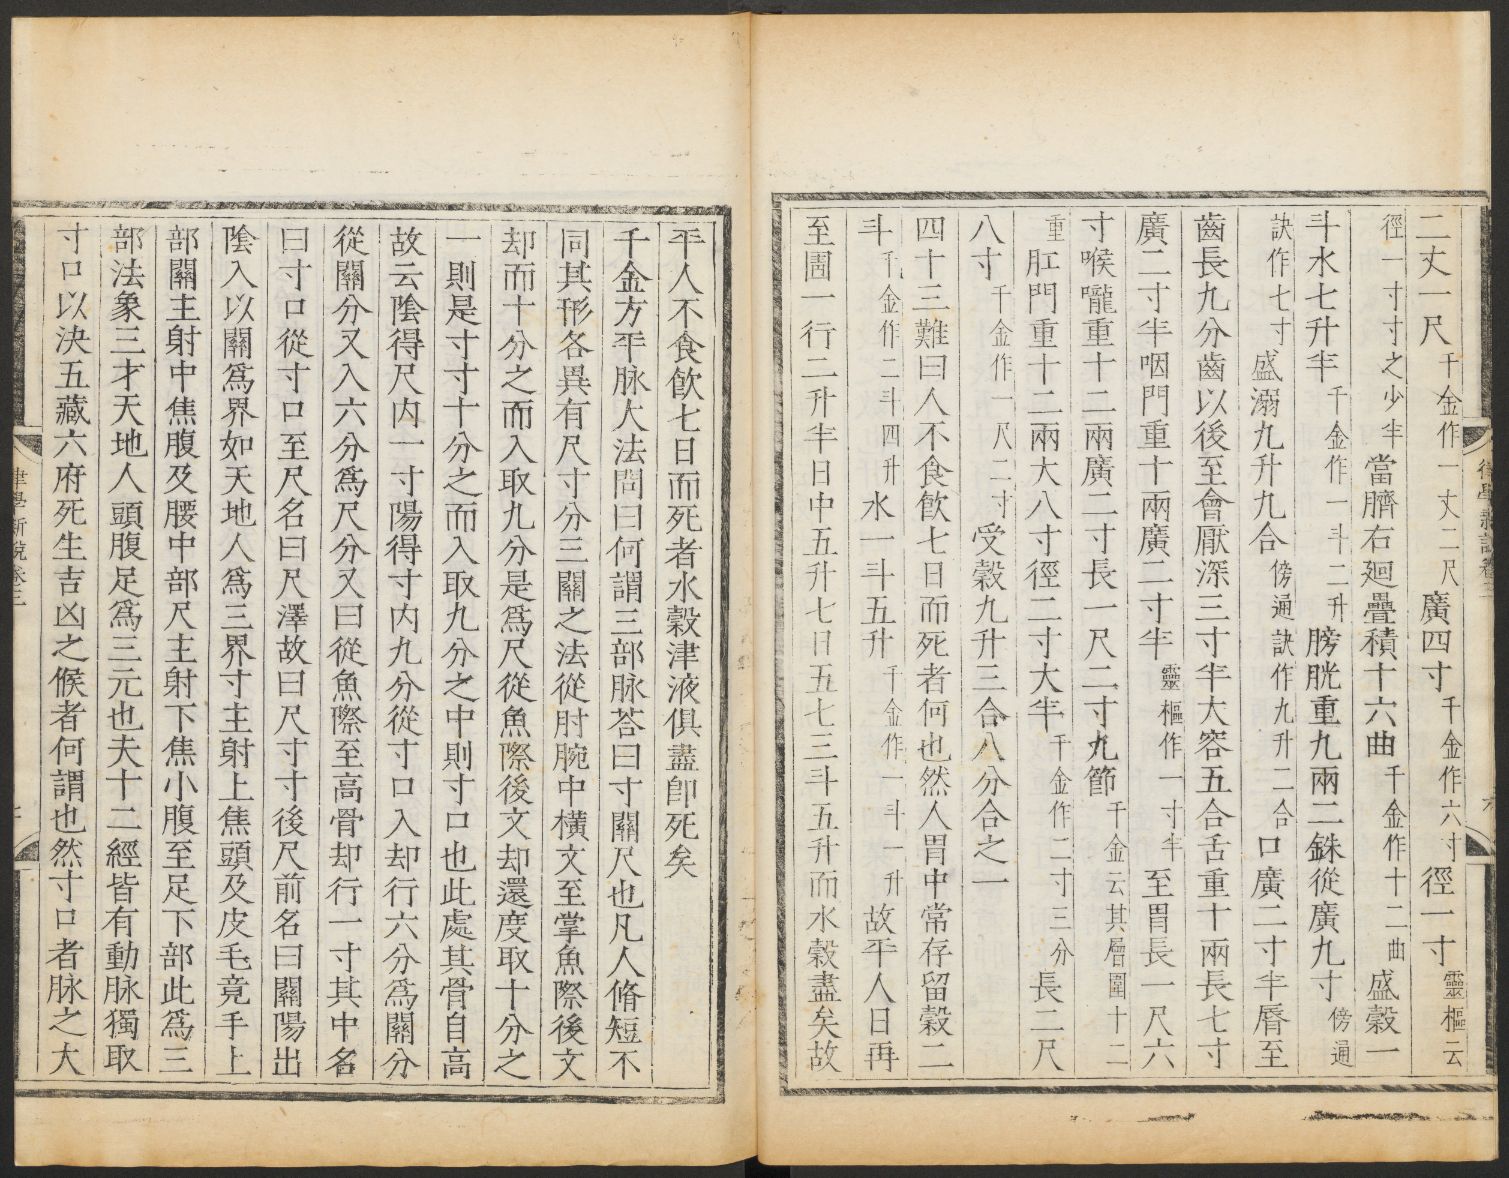 二丈一尺千金作一丈二尺廣四寸千金作六寸徑一寸靈樞云
徑一寸寸之少半當臍右廻疊積十六曲千金作十二曲盛穀一
斗水七升半千金作一斗二升膀胱重九兩二銖從廣九寸傍通
訣作七寸盛溺九升九合傍通訣作九升二合口廣二寸半脣至
齒長九分齒以後至會厭深三寸半大容五合舌重十兩長七寸
廣二寸半咽門重十兩廣二寸半靈樞作一寸半至胃長一尺六
寸喉嚨重十二兩廣二寸長一尺二寸九節千金云其層圍十二
重肛門重十二兩大八寸徑二寸大半千金作二寸三分長二尺
八寸千金作一尺二寸受穀九升三合八分合之一
四十三難曰人不食飲七日而死者何也然人胃中常存留穀二
斗千金作二斗四升水一斗五升千金作一斗一升故平人日再
至圊一行二升半日中五升七日五七三斗五升而水穀盡矣故
律學新說卷三
平人不食飲七日而死者水穀津液俱盡卽死矣
千金方平脉大法問曰何謂三部脉荅曰寸關尺也凡人脩短不
同其形各異有尺寸分三關之法從肘腕中橫文至掌魚際後文
却而十分之而入取九分是爲尺從魚際後文却還度取十分之
一則是寸寸十分之而入取九分之中則寸口也此處其骨自高
故云陰得尺内一寸陽得寸内九分從寸口入却行六分爲關分
從關分又入六分爲尺分又曰從魚際至高骨却行一寸其中名
曰寸口從寸口至尺名曰尺澤故曰尺寸寸後尺前名曰關陽出
陰入以關爲界如天地人爲三界寸主射上焦頭及皮毛竟手上
部關主射中焦腹及腰中部尺主射下焦小腹至足下部此爲三
部法象三才天地人頭腹足爲三元也夫十二經皆有動脉獨取
寸口以決五藏六府死生吉凶之候者何謂也然寸口者脉之大
律學新說卷三